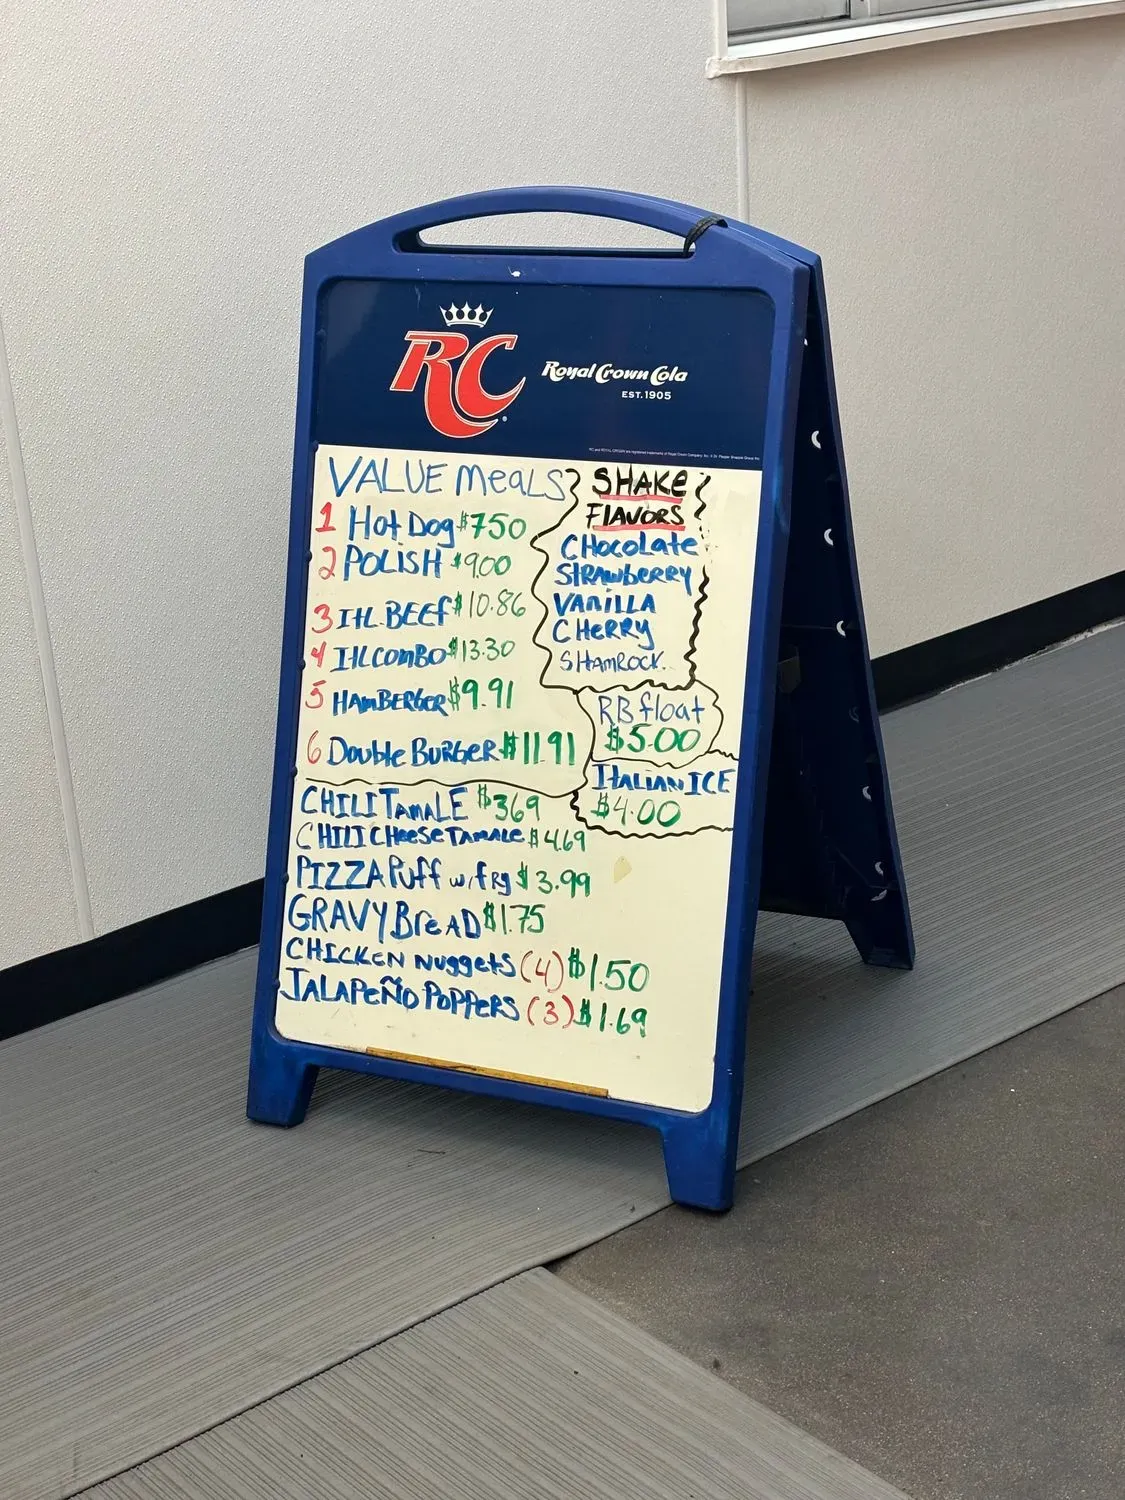 RC
Royal Crown Cola
EST. 1905
VALUE Meals
1 Hot Dog $750
2 POLISH $9.00
3 Itl. BEEf $10.86
4 Itl COMBO $13.30
5 HAMBERGER $9.91
6 Double BURGER $11.91
CHILI TAMALE $369
CHILI CHeese TAMALE $4.69
PIZZA Puff w/fry $3.99
GRAVY BreAD $1.75
CHICKEN Nuggets (4) $1.50
JALAPEÑO POPPERS (3) $1.69
SHAKE
FLAVORS
CHocoLate
STRAWbERRY
VANILLA
CHeRRY
SHAMROCK.
RB float
$5.00
ITALIAN ICE
$4.00